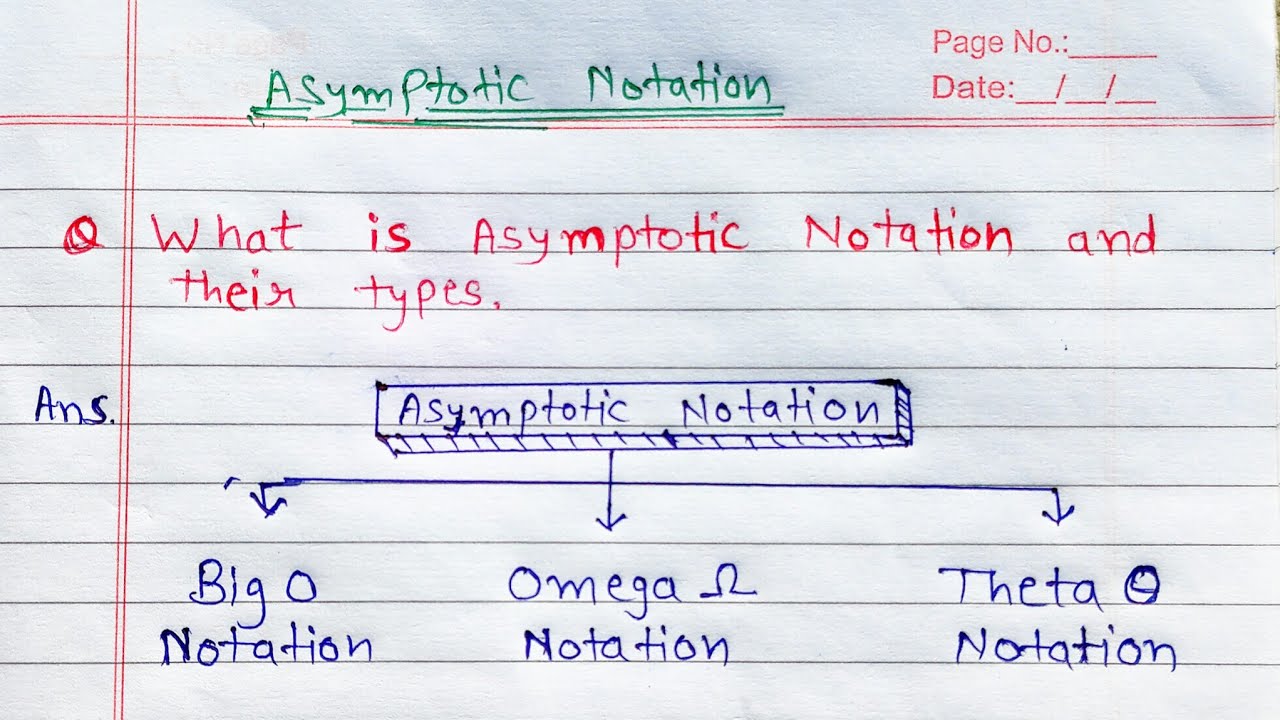 Page No.:_____
Date:__/__/__
Asymptotic Notation
Q What is Asymptotic Notation and
their types.
Ans.
Asymptotic Notation
Big O Omega Ω Theta Θ
Notation Notation Notation